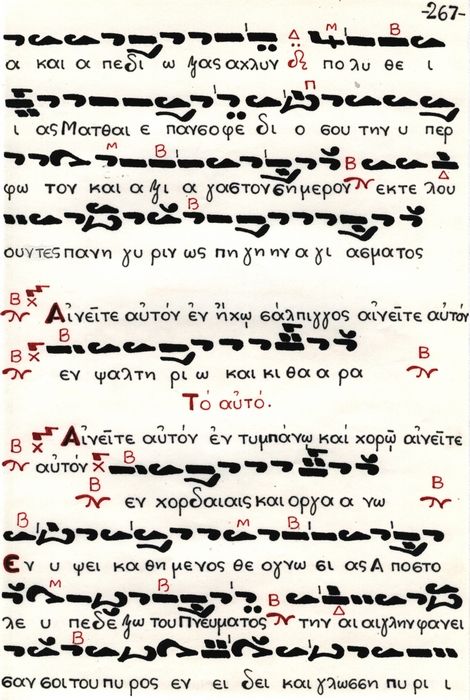 -267-
α και α πεδι ω ξας αχλυν πο λυ θε ι
ι ας Ματθαι ε πανσοφε δι ο σου την υ περ
φω τον και α ξι α γαστον σημερον εκτε λου
ουντες πανη γυ ριν ως πη γην α γι ασματος
Αἰνεῖτε αὐτόν ἐν ἤχῳ σάλπιγγος αἰνεῖτε αὐτόν
εν ψαλτη ρι ω και κι θα α ρα
Τό αὐτό.
Αἰνεῖτε αὐτόν ἐν τυμπάνῳ καί χορῷ αἰνεῖτε
αὐτόν
εν χορδαιαις και οργα α νω
Εν υ ψει κα θη μενος θε ογνω σι ας Α ποστο
λε υ πεδε ξω του Πνεύματος την αι αιγλην φανει
σαν σοι του πυ ρος εν ει δει και γλωσση πυ ρι ι